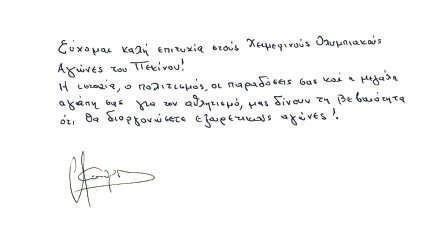 Εύχομαι καλή επιτυχία στους Χειμερινούς Ολυμπιακούς
Αγώνες του Πεκίνου!
Η ιστορία, ο πολιτισμός, οι παραδόσεις σας και η μεγάλη
αγάπη σας για τον αθλητισμό, μας δίνουν τη βεβαιότητα
ότι θα διοργανώσετε εξαιρετικούς αγώνες!